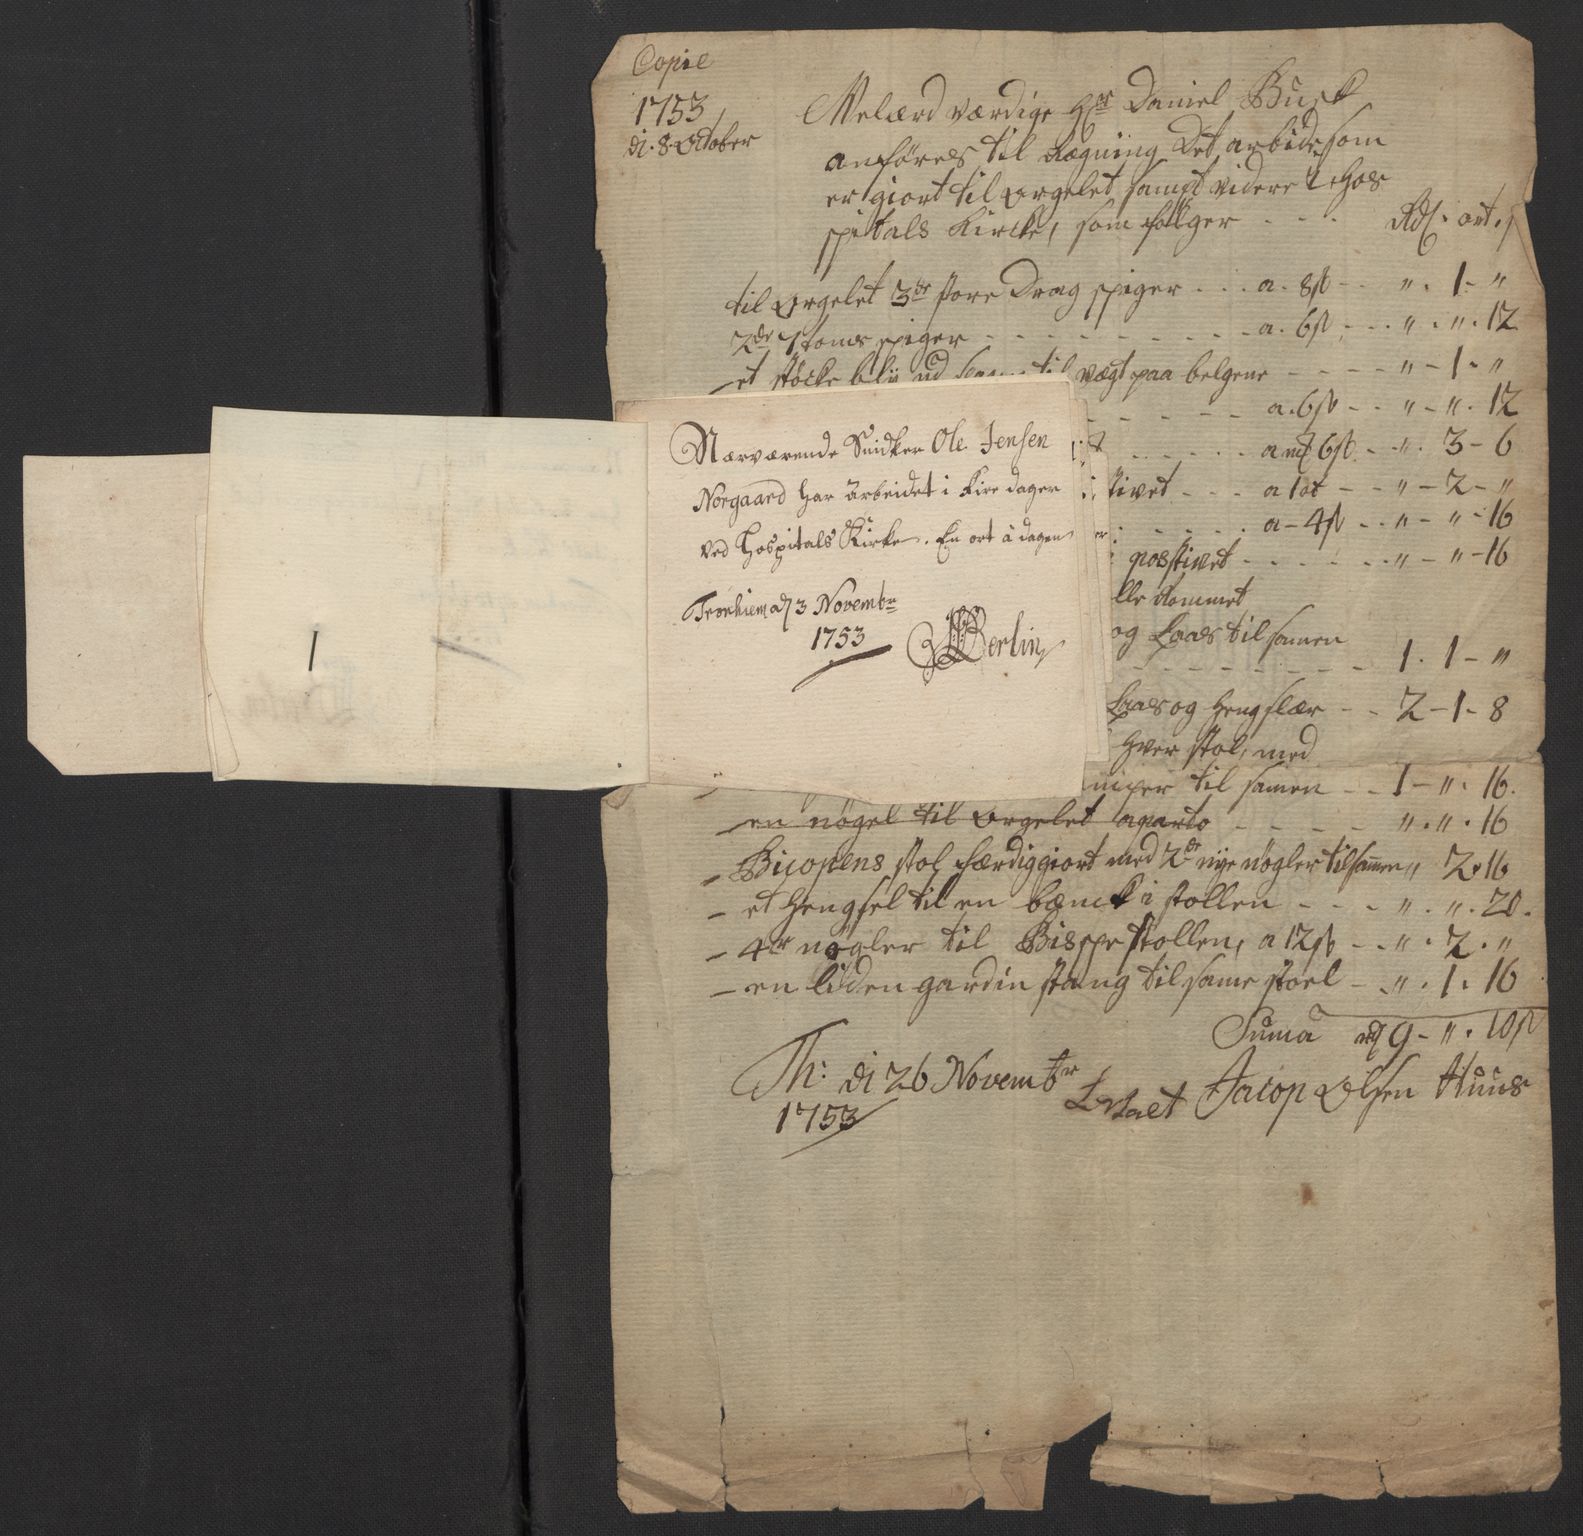 Copie
1753
di. 8 October
Velærdværdige Hr Daniel Busk
anföres til Regning Det arbide som
er giort til Orgelet samt videre i Hos
spitals Kircke, som fölger - - - Rdl. ort. s
til Orgelet 3de store Drag spiger - - - a. 8s - - " . 1 - "
2de spiger - - - a. 6s - - " . " . 12
et støcke bly til vægt paa belgene - - - " - 1 - "
- - - a. 6s - - " - " . 12
- - - a 6s - - " . 3 - 6
- - - a 1 ort - - " - 2 - "
- - - a - 4s - - " - " - 16
posstivet - - - " - " - 16
og Laas til samen
- - - 1 . 1 - "
Laas og Hengslær - - 2 - 1 - 8
hver stol, med
til samen - - 1 - " . 16.
en nögel til Orgelet aparto - - - " . " . 16
- Bicopens stol færdiggiort med 2de nye nögler tilsamen " 2 . 16
- et Hengsel til en bænck i stollen - - - " . " . 20.
- 4r nögler til Bispe stollen, a 12s - - " . 2 . "
- en liden gardin stang til same stoel - " . 1 . 16
Suma 9 - " . 10s
Th: di 26 Novembr
1753
Jacop Olsen Huus
Nærværende Snidker Ole Jensen
Norgaard har arbeidet i Fire dager
ved Hospitals Kirke. En ort à dagen
Tronhiem d 3 Novembr
1753
Berlin
1